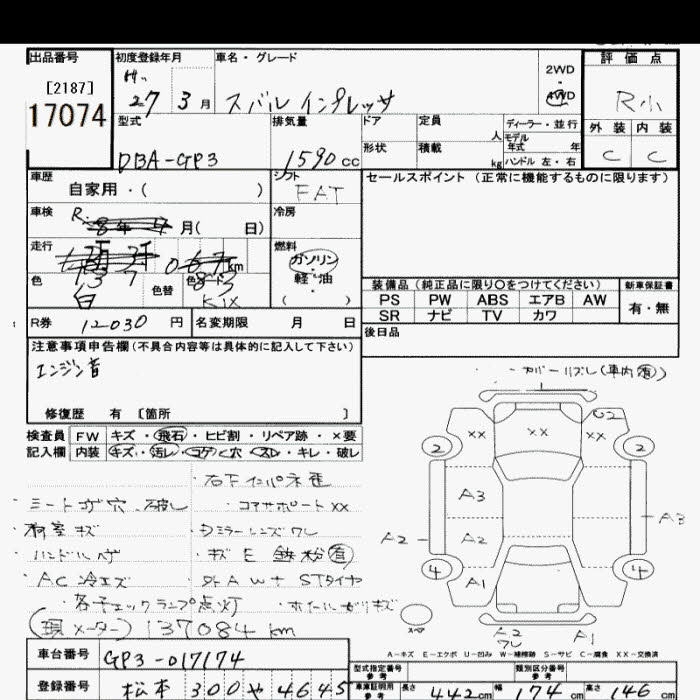 出品番号 初度登録年月 車名・グレード 評価点
[2187] 2WD
17074 27 3月 スバル インプレッサ 4WD R小
型式 排気量 ドア 定員 人 ディーラー・並行 外装 内装
モデル年式 年
DBA-GP3 1590 cc 形状 積載 kg ハンドル 左・右 C C
車歴 シフト セールスポイント (正常に機能するものに限ります)
自家用・( ) FAT
車検 R 8年 4月( 日) 冷房
走行 km 燃料
1 3 7 0 8 3 ガソリン・軽・油 ( )
色 白 色替 色コード K1X 装備品 (純正品に限り○をつけてください) 新車保証書
PS PW ABS エアB AW 有・無
SR ナビ TV カワ
R券 12030 円 名変期限 月 日 後日品
注意事項申告欄 (不具合内容等は具体的に記入して下さい)
エンジン音
修復歴 有 [箇所 ]
検査員 FW キズ・飛石・ヒビ割・リペア跡・×要
記入欄 内装 キズ・汚レ・コゲ・穴・スレ・キレ・破レ
・右下インパネ歪
・シートコゲ穴、破レ ・コアサポートXX
・荷室キズ ・Dミラーレンズワレ
・ハンドルハゲ ・キズ E 鉄粉(有)
・AC冷エズ ・外AW+STタイヤ
・各チェックランプ点灯 ・ホイールガリキズ
(現メーター) 137084 km
・カバーリズレ(車内有)
U2
XX XX XX
2 2
A3 A3
A2 A2
4 A1 4
スペア A2 ワレ A1
A-キズ E-エクボ U-凹み W-補修跡 S-サビ C-腐食 XX-交換済
車台番号 GP3-017174
型式指定番号 参考 類別区分番号 参考
登録番号 松本 300 や 4645
車庫証明用 参考 長さ 442 cm 幅 174 cm 高さ 146 cm